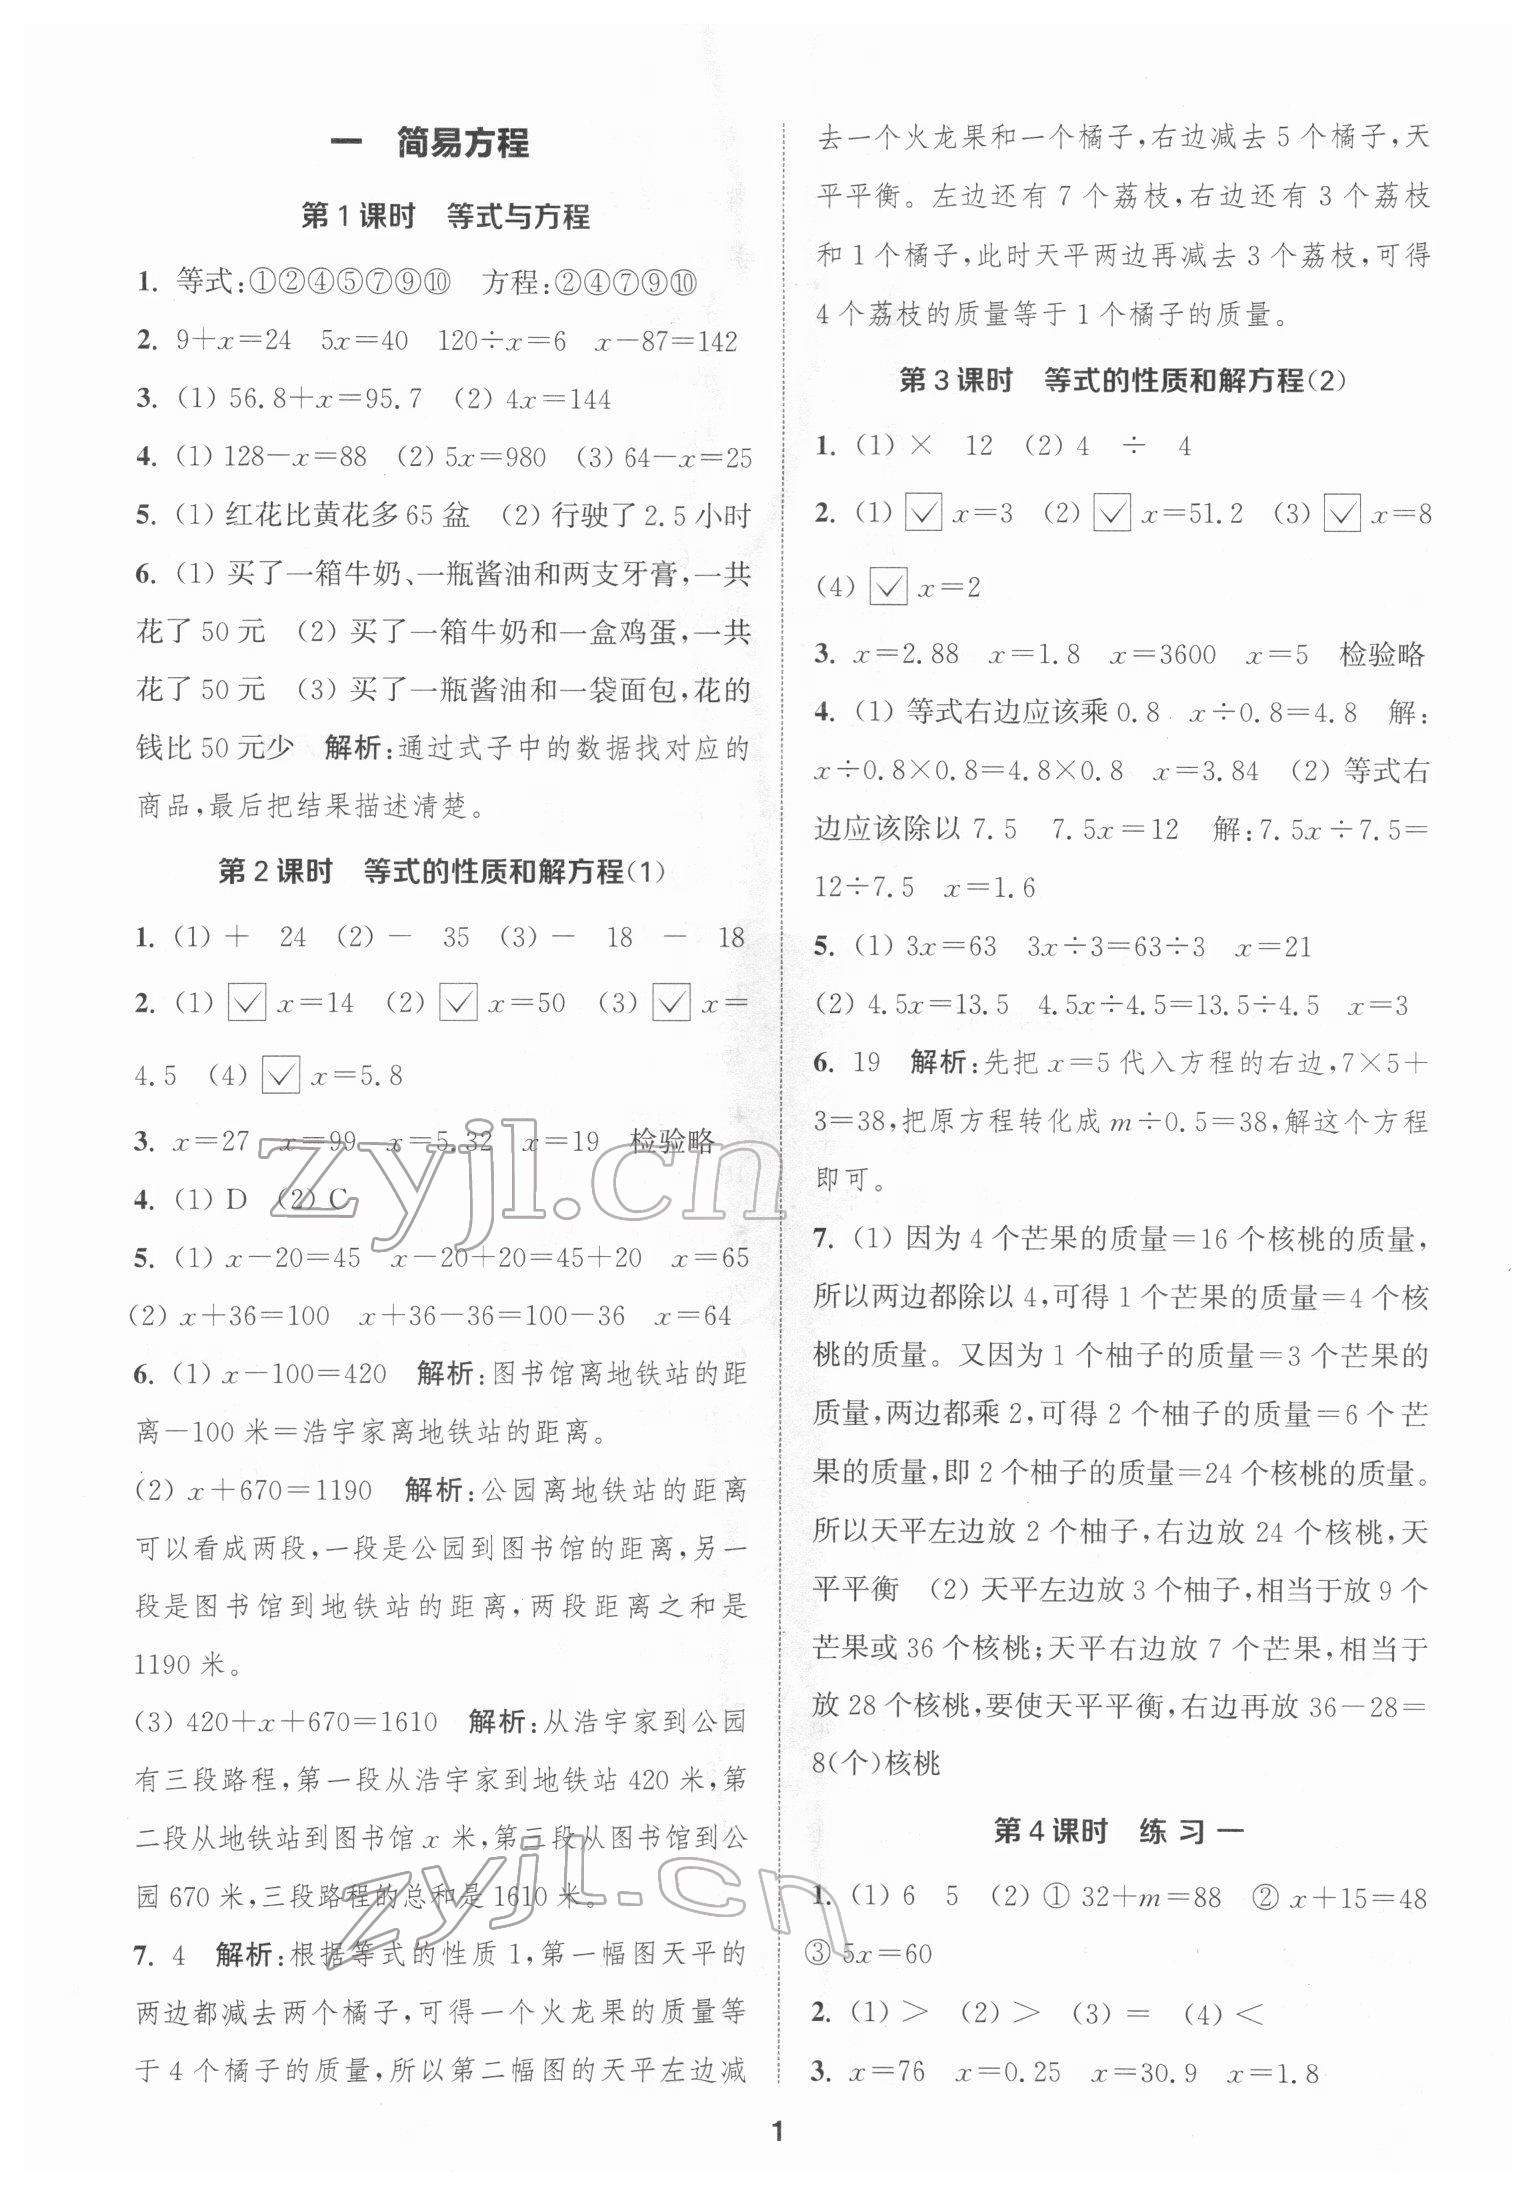 一 简易方程
第1课时 等式与方程
1. 等式:①②④⑤⑦⑨⑩ 方程:②④⑦⑨⑩
2. 9+x=24 5x=40 120÷x=6 x-87=142
3. (1) 56.8+x=95.7 (2) 4x=144
4. (1) 128-x=88 (2) 5x=980 (3) 64-x=25
5. (1) 红花比黄花多65盆 (2) 行驶了2.5小时
6. (1) 买了一箱牛奶、一瓶酱油和两支牙膏,一共
花了50元 (2) 买了一箱牛奶和一盒鸡蛋,一共
花了50元 (3) 买了一瓶酱油和一袋面包,花的
钱比50元少 解析:通过式子中的数据找对应的
商品,最后把结果描述清楚。
第2课时 等式的性质和解方程(1)
1. (1) + 24 (2) - 35 (3) - 18 - 18
2. (1) ☑ x=14 (2) ☑ x=50 (3) ☑ x=
4.5 (4) ☑ x=5.8
3. x=27 x=99 x=5.32 x=19 检验略
4. (1) D (2) C
5. (1) x-20=45 x-20+20=45+20 x=65
(2) x+36=100 x+36-36=100-36 x=64
6. (1) x-100=420 解析:图书馆离地铁站的距
离-100米=浩宇家离地铁站的距离。
(2) x+670=1190 解析:公园离地铁站的距离
可以看成两段,一段是公园到图书馆的距离,另一
段是图书馆到地铁站的距离,两段距离之和是
1190米。
(3) 420+x+670=1610 解析:从浩宇家到公园
有三段路程,第一段从浩宇家到地铁站420米,第
二段从地铁站到图书馆x米,第三段从图书馆到公
园670米,三段路程的总和是1610米。
7. 4 解析:根据等式的性质1,第一幅图天平的
两边都减去两个橘子,可得一个火龙果的质量等
于4个橘子的质量,所以第二幅图的天平左边减
去一个火龙果和一个橘子,右边减去5个橘子,天
平平衡。左边还有7个荔枝,右边还有3个荔枝
和1个橘子,此时天平两边再减去3个荔枝,可得
4个荔枝的质量等于1个橘子的质量。
第3课时 等式的性质和解方程(2)
1. (1) × 12 (2) 4 ÷ 4
2. (1) ☑ x=3 (2) ☑ x=51.2 (3) ☑ x=8
(4) ☑ x=2
3. x=2.88 x=1.8 x=3600 x=5 检验略
4. (1) 等式右边应该乘0.8 x÷0.8=4.8 解:
x÷0.8×0.8=4.8×0.8 x=3.84 (2) 等式右
边应该除以7.5 7.5x=12 解:7.5x÷7.5=
12÷7.5 x=1.6
5. (1) 3x=63 3x÷3=63÷3 x=21
(2) 4.5x=13.5 4.5x÷4.5=13.5÷4.5 x=3
6. 19 解析:先把x=5代入方程的右边,7×5+
3=38,把原方程转化成m÷0.5=38,解这个方程
即可。
7. (1) 因为4个芒果的质量=16个核桃的质量,
所以两边都除以4,可得1个芒果的质量=4个核
桃的质量。又因为1个柚子的质量=3个芒果的
质量,两边都乘2,可得2个柚子的质量=6个芒
果的质量,即2个柚子的质量=24个核桃的质量。
所以天平左边放2个柚子,右边放24个核桃,天
平平衡 (2) 天平左边放3个柚子,相当于放9个
芒果或36个核桃;天平右边放7个芒果,相当于
放28个核桃,要使天平平衡,右边再放36-28=
8(个)核桃
第4课时 练习一
1. (1) 6 5 (2) ① 32+m=88 ② x+15=48
③ 5x=60
2. (1) > (2) > (3) = (4) <
3. x=76 x=0.25 x=30.9 x=1.8
1
zyjl.cn
zyjl.cn